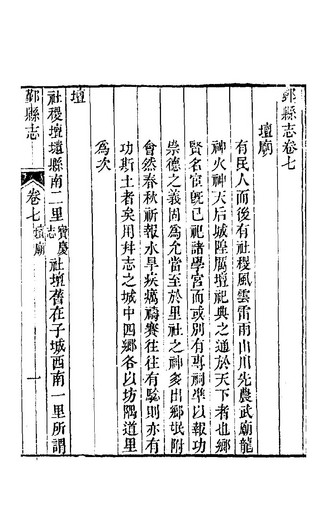 鄞縣志卷七
壇廟
有民人而後有社稷風雲雷雨山川先農武廟龍
神火神天后城隍厲壇祀典之通於天下者也鄉
賢名宦旣已祀諸學宮而或別有專祠準以報功
崇德之義固為允當至於里社之神多出鄉氓附
會然春秋祈報水旱疾癘禱賽往往有驗則亦有
功斯土者矣用幷志之城中四鄉各以坊隅道里
為次
壇
社稷壇壝縣南二里寶慶志社壇舊在子城西南一里所謂
鄞縣志
卷七
壇廟
一